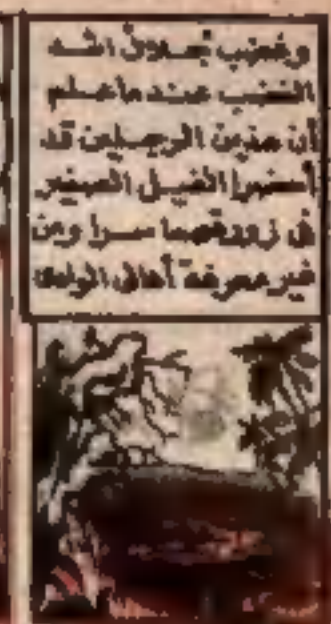 وغضب جلال أشد
الغضب عندما علم
أن هذين الرجلين قد
أحضرا الفيل الصغير
فى زورقهما سرا ومن
غير معرفة أهالى الوادى